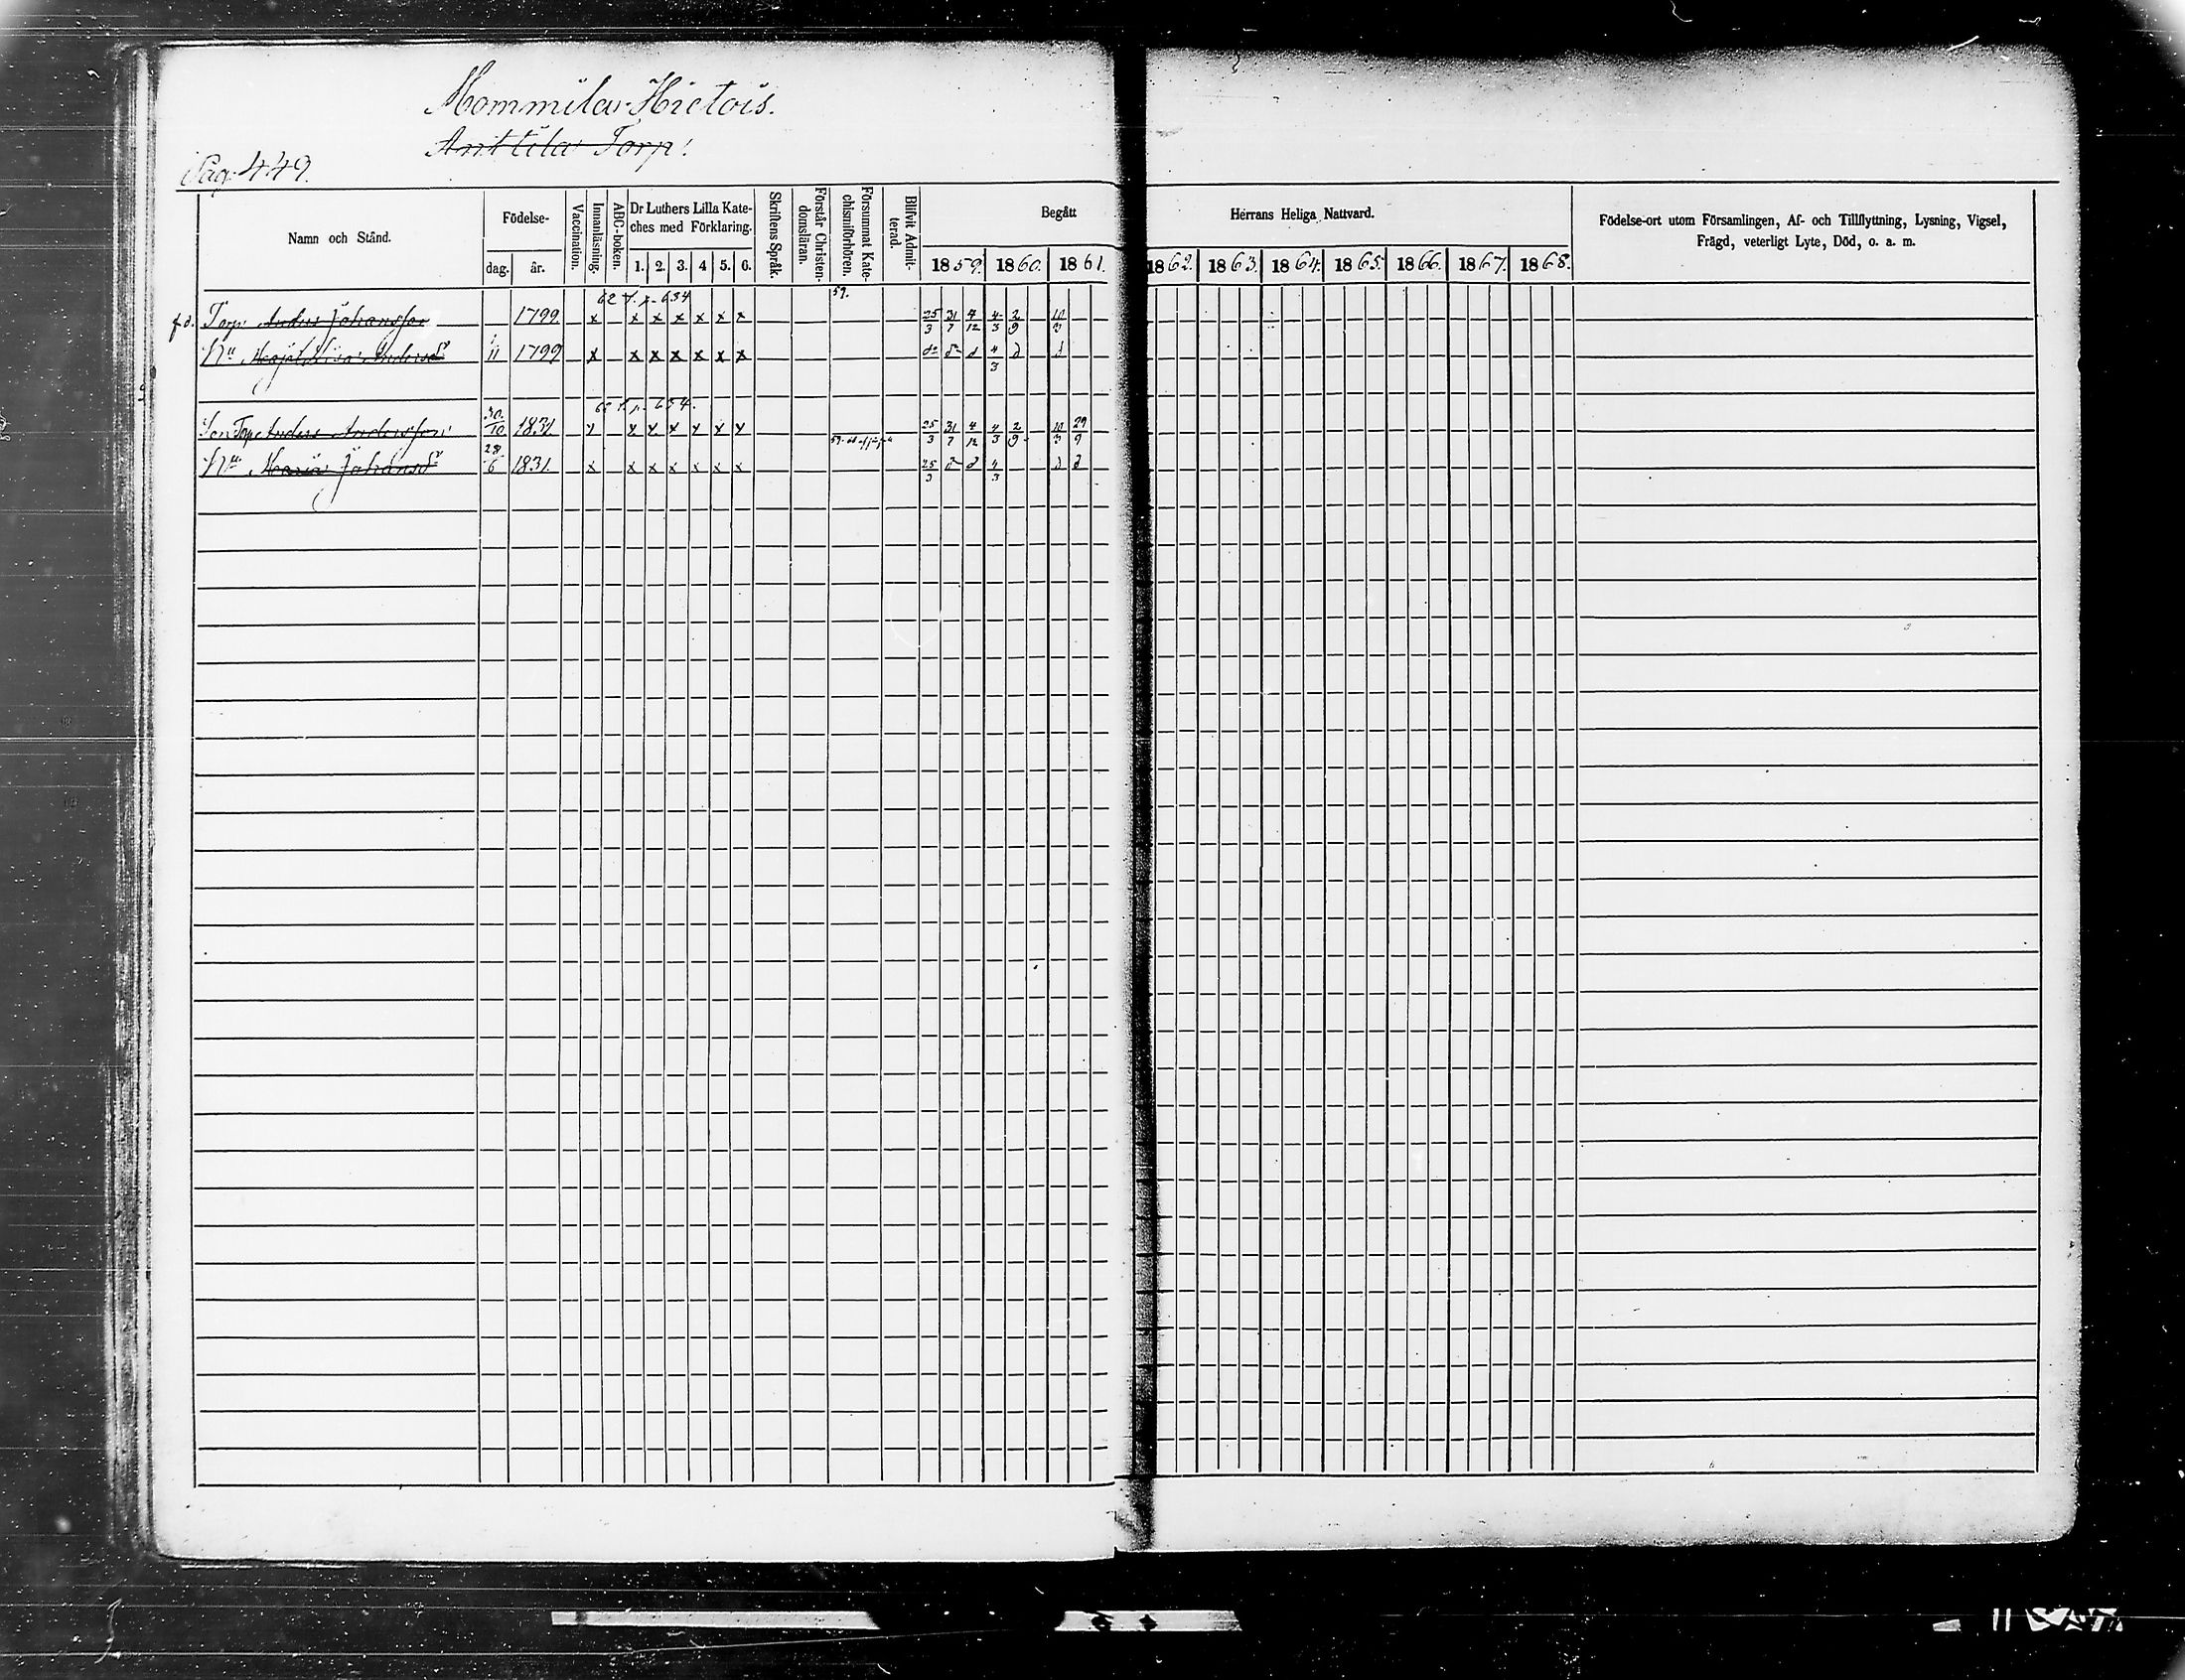 Mommila Hietois.
Anttila Torp:
Pag. 449.
Namn och Stånd.
Födelse-
dag. år.
Vaccination.
Innanläsning.
ABC-boken.
Dr Luthers Lilla Kate-
ches med Förklaring.
1. 2. 3. 4 5. 6.
Skriftens Språk.
Förstår Christen-
domsläran.
Försummat Kate-
chismiförhören.
Blifvit Admit-
terad.
Begått
Herrans Heliga Nattvard.
1859. 1860. 1861. 1862. 1863. 1864. 1865. 1866. 1867. 1868.
Födelse-ort utom Församlingen, Af- och Tillflyttning, Lysning, Vigsel,
Frägd, veterligt Lyte, Död, o. a. m.
62 f. p. 634 59.
f.d. Torp. Anders Johansson 1799 x x x x x x x 25/3 31/7 4/12 4/3 2/9 10/3
Hu Maja Lisa Andersdr 11 1799 x x x x x x x 4/3
p. 634.
Son Torp Anders Andersson 30/10 1831 x x x x x x x 25/3 31/7 4/12 4/3 2/9 10/3 29/9
Hu Maria Johansdr 28/6 1831. x x x x x x x 25/3 4/3